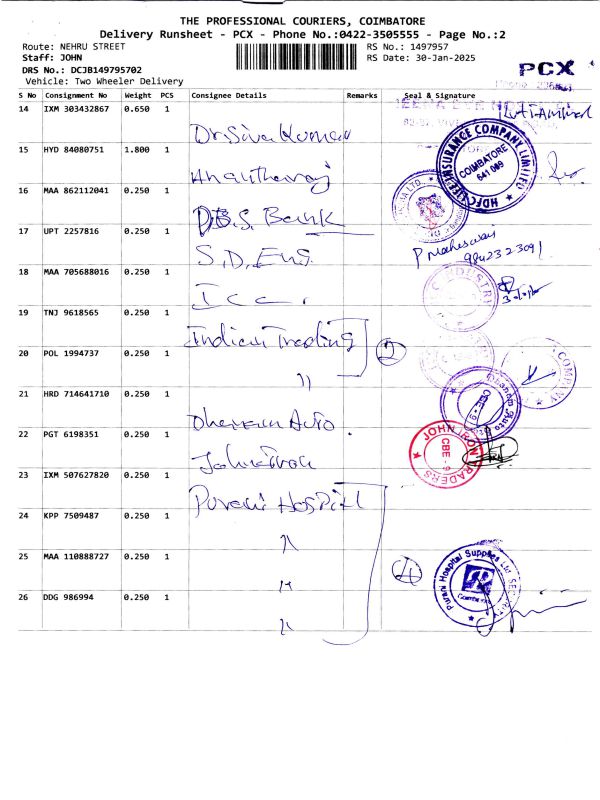 THE PROFESSIONAL COURIERS, COIMBATORE
Delivery Runsheet - PCX - Phone No.:0422-3505555 - Page No.:2
Route: NEHRU STREET RS No.: 1497957
Staff: JOHN RS Date: 30-Jan-2025
DRS No.: DCJB149795702 PCX
Vehicle: Two Wheeler Delivery
S No Consignment No Weight PCS Consignee Details Remarks Seal & Signature
14 IXM 303432867 0.650 1 Dr Siva Kumar
15 HYD 84080751 1.800 1 Ananthavaj HDFC LIFE INSURANCE COMPANY LIMITED COIMBATORE 641 009
16 MAA 862112041 0.250 1 DBS Bank
17 UPT 2257816 0.250 1 S.D. Eng. P Maheswari 9842323091
18 MAA 705688016 0.250 1 Icc.
19 TNJ 9618565 0.250 1 Indian Trading
20 POL 1994737 0.250 1 " 2 COMPANY
21 HRD 714641710 0.250 1 Dhanam Auto
22 PGT 6198351 0.250 1 John Iron JOHN IRON TRADERS CBE - 9
23 IXM 507627820 0.250 1 Purani Hospital
24 KPP 7509487 0.250 1 "
25 MAA 110888727 0.250 1 " 4 Purani Hospital Supplies Ltd SECURITY
26 DDG 986994 0.250 1 "